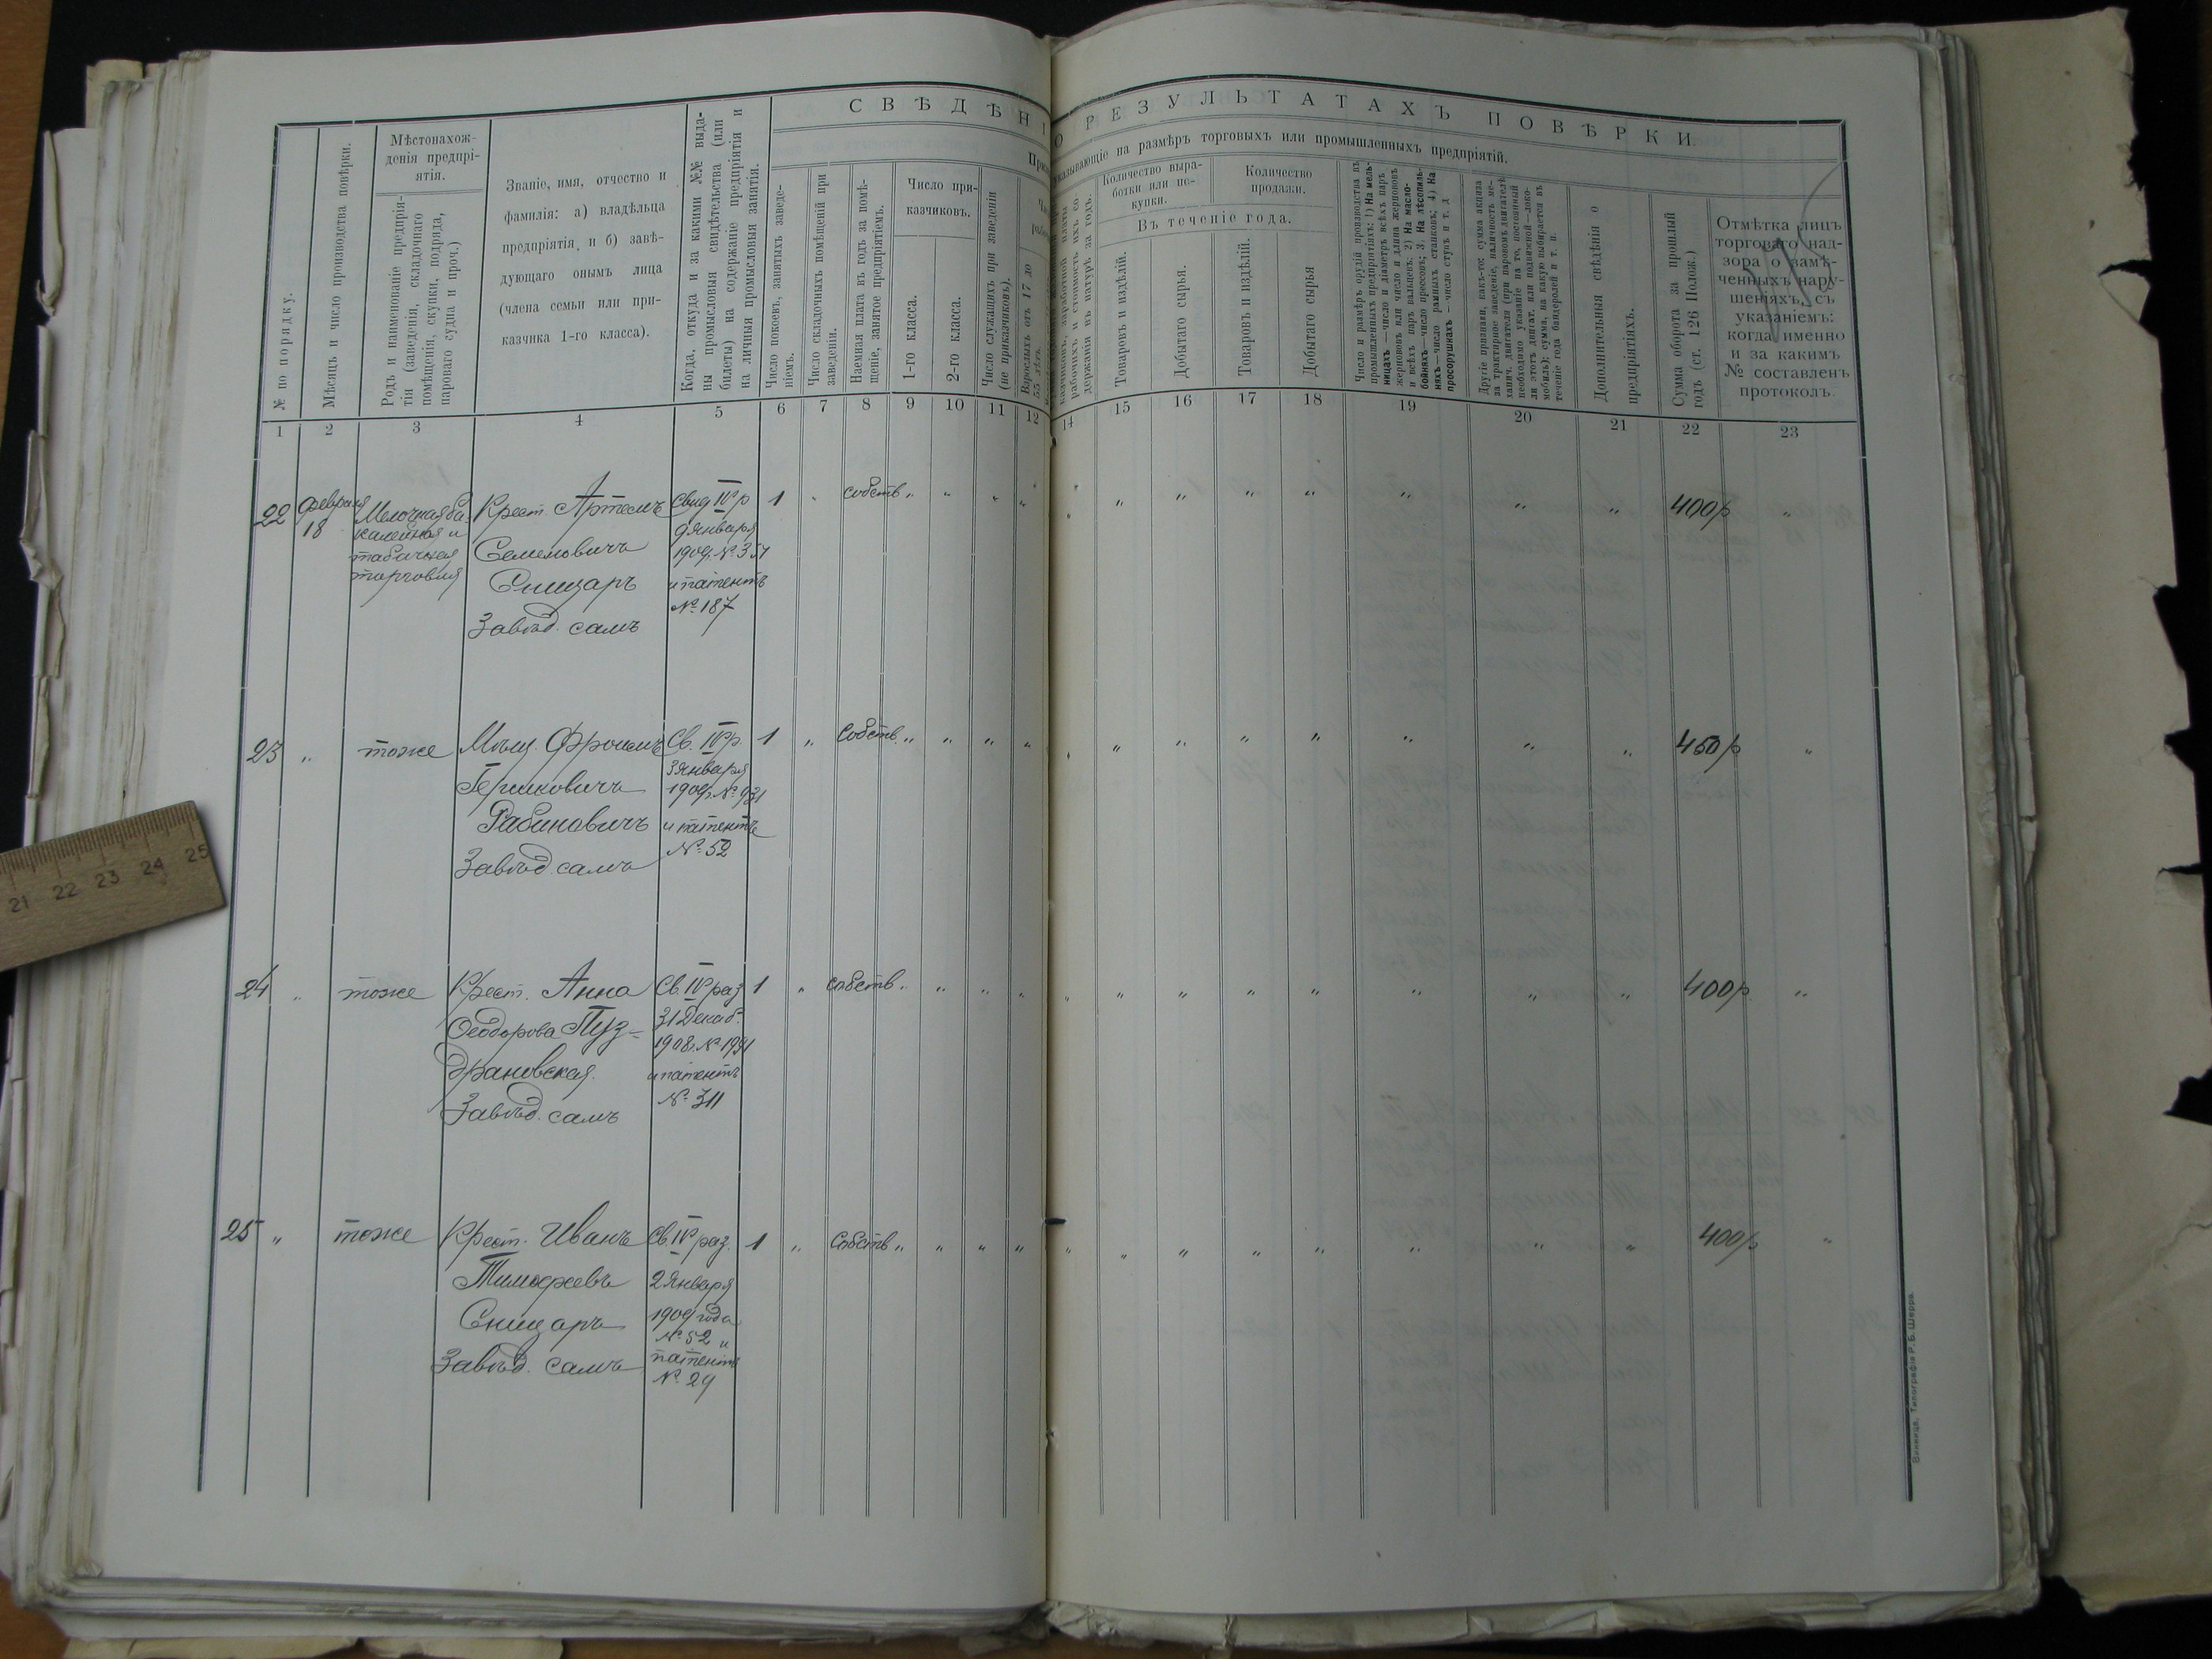 СВѢДѢНІ
О РЕЗУЛЬТАТАХЪ ПОВѢРКИ.
указывающіе на размѣръ торговыхъ или промышленныхъ предпріятій.
№ по порядку.
Мѣсяцъ и число производства повѣрки.
Мѣстонахож-
денія предпрі-
ятія.
Родъ и наименованіе предпрія-
тія (заведенія, складочнаго
помѣщенія, скупки, подряда,
пароваго судна и проч.)
Званіе, имя, отчество и
фамилія: а) владѣльца
предпріятія и б) завѣ-
дующаго онымъ лица
(члена семьи или при-
казчика 1-го класса).
Когда, откуда и за какими №№ выда-
ны промысловыя свидѣтельства (или
билеты) на содержаніе предпріятія и
на личныя промысловыя занятія.
Число покоевъ, занятыхъ заведе-
ніемъ.
Число складочныхъ помѣщеній при
заведеніи.
Наемная плата въ годъ за помѣ-
щеніе, занятое предпріятіемъ.
Число при-
казчиковъ.
1-го класса.
2-го класса.
Число служащихъ при заведеніи
(не приказчиковъ).
Взрослыхъ отъ 17 до
55 лѣтъ.
казчиковъ, заработной платы
рабочихъ и стоимость ихъ со-
держанія въ натурѣ за годъ.
Количество выра-
ботки или по-
купки.
Количество
продажи.
Въ теченіе года.
Товаровъ и издѣлій.
Добытаго сырья.
Товаровъ и издѣлій.
Добытаго сырья
Число и размѣръ орудій производства въ
промышленныхъ предпріятіяхъ: 1) На мель-
ницахъ—число и діаметръ всѣхъ паръ
жернововъ или число и длина жернововъ
и всѣхъ паръ вальцевъ. 2) На масло-
бойняхъ—число прессовъ; 3. На лѣсопиль-
няхъ—число рамныхъ станковъ; 4) На
просорушкахъ — число ступъ и т. д
Другіе признаки, какъ-то: сумма акциза
за трактирное заведеніе, наличность ме-
ханич. двигателя (при паровомъ двигателѣ
необходимо указаніе на то, постоянный
ли этотъ двигат. или подвижной—локо-
мобиль); сумма, на какую выбирается въ
теченіе года бандеролей и т. п.
Дополнительныя свѣдѣнія о
предпріятіяхъ.
Сумма оборота за прошлый
годъ (ст. 126 Полож.)
Отмѣтка лицъ
торговаго над-
зора о замѣ-
ченныхъ нару-
шеніяхъ, съ
указаніемъ:
когда именно
и за какимъ
№ составленъ
протоколъ.
1 2 3 4 5 6 7 8 9 10 11 12 14 15 16 17 18 19 20 21 22 23
22 Февраля Мелочная ба- Крест. Артемъ Свид IVр 1 „ собств „ „ „ „ „ „ „ „ „ „ „ „ 400р „
18 калейная и Семеновичъ 9 Января
табачная 1909. № 357
торговля Сницаръ и патентъ
№ 187
Завѣд. самъ
23 „ тоже Мѣщ. Фроимъ Св. IVр. 1 „ собств. „ „ „ „ „ „ „ „ „ „ „ „ 450р „
3 Января
Гершковичъ 1909г. № 931
Рабиновичъ и патентъ
№ 52
Завѣд. самъ
24 „ тоже Крест. Анна Св. IVраз 1 „ собств „ „ „ „ „ „ „ „ „ „ „ „ 400р. „
Ѳеодорова Пуз- 31 Декаб.
1908г. № 1991
драновская. и патентъ
Завѣд. самъ № 311
25 „ тоже Крест. Иванъ Св. IVраз. 1 „ Собств „ „ „ „ „ „ „ „ „ „ „ „ 400р „
Тимофеевъ 2 Января
Сницаръ 1909 года
№ 52 и
Завѣд. самъ патентъ
№ 29
Винница, Типографія Р. Б. Шерра.
21 22 23 24 25